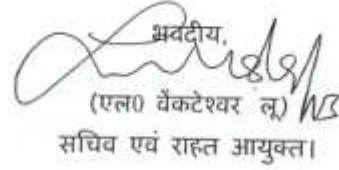 भवदीय,
(एल0 वेंकटेश्वर लू)
सचिव एवं राहत आयुक्त।